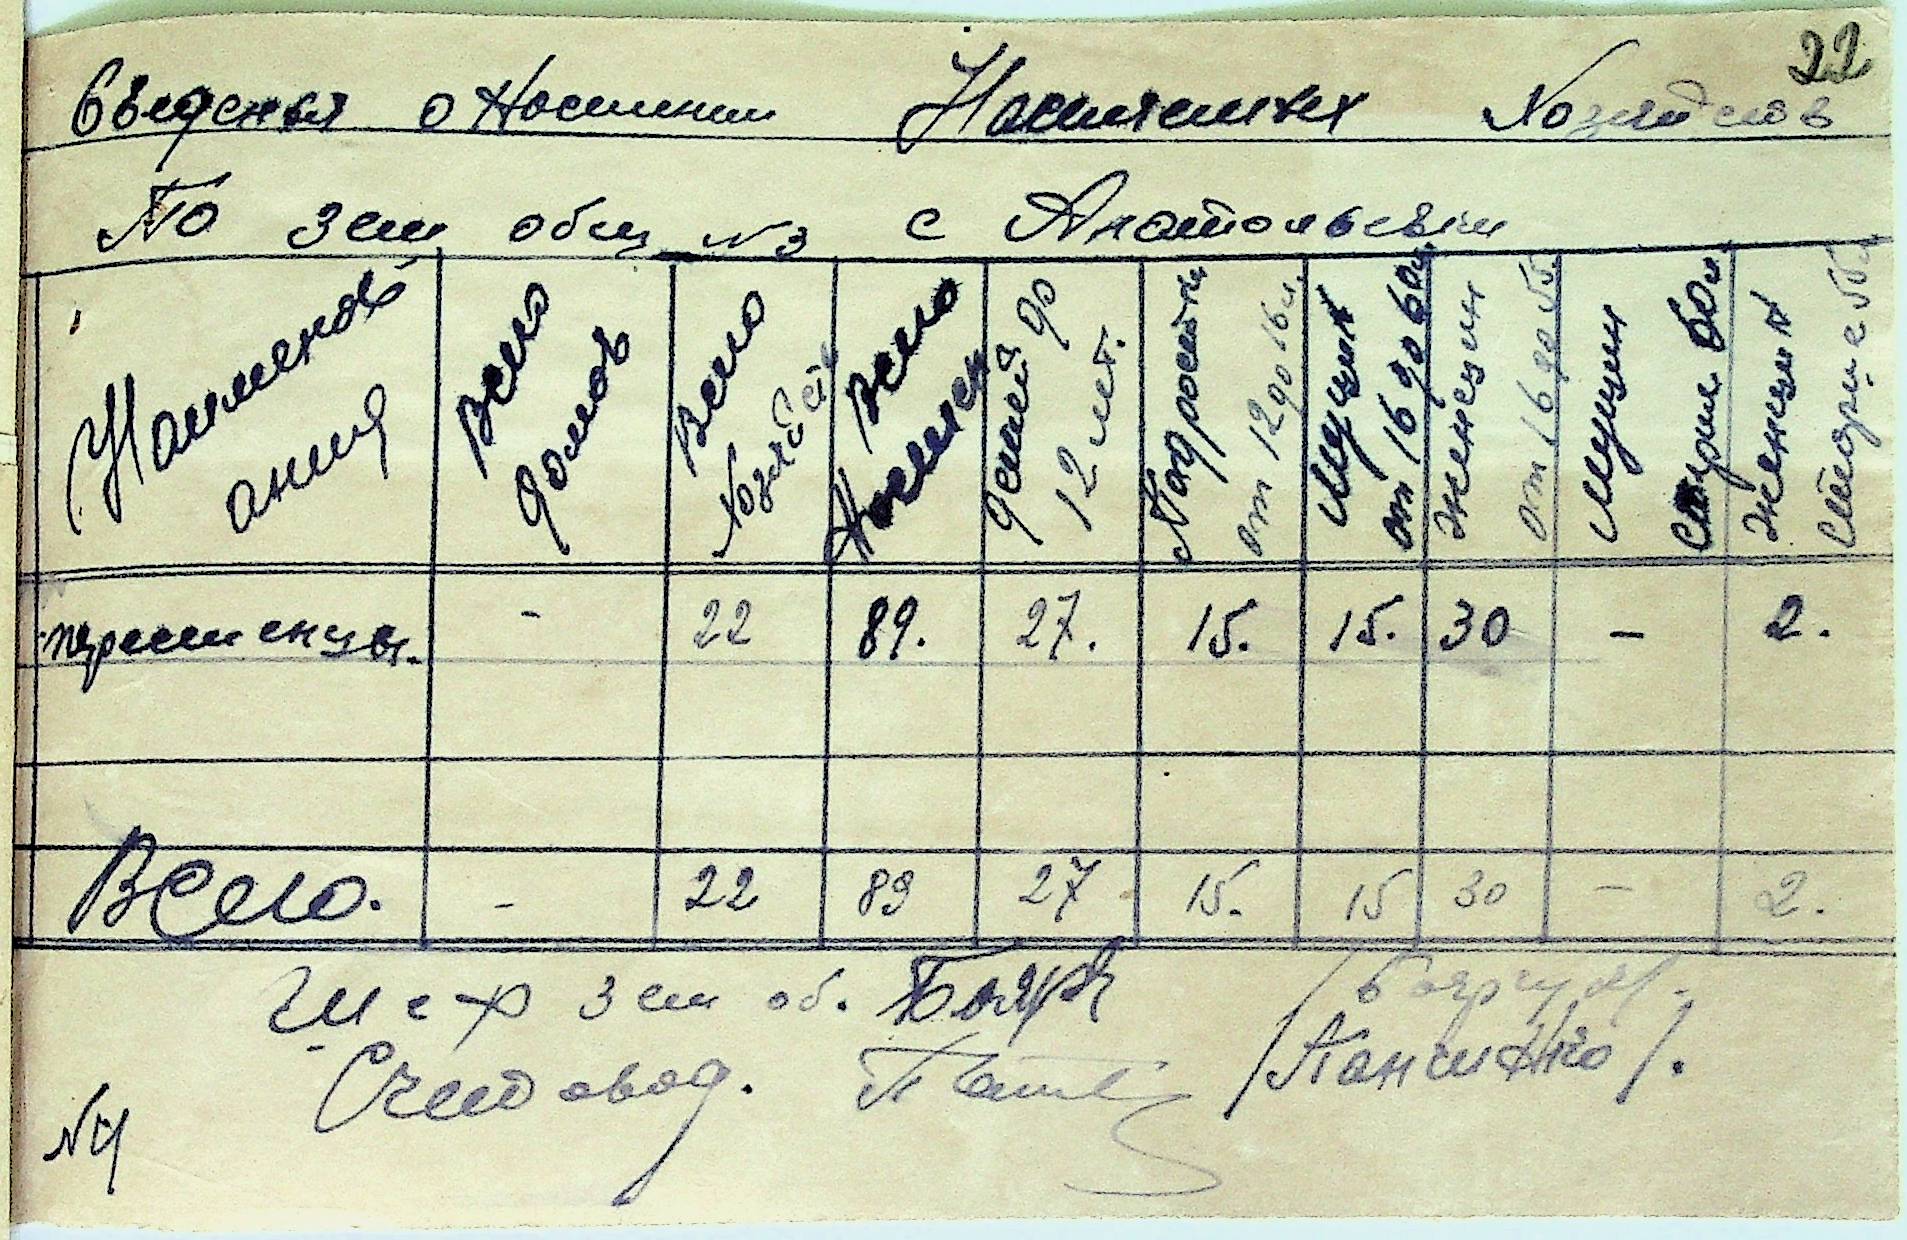 22
Сведенья о Населении Хозяйств
По зем общ N3 с Анатольевки
Наименов
ания
Всего
домов
Всего
Хозяйств
Всего
Населен
детей до
12 лет.
Подростки
от 12 до 16 л.
Мущин
от 16 до 60 л
женщин
от 16 до 55
Мущин
старше 60 л
женщин
старше 55 л
переселенцы. - 22 89. 27. 15. 15. 30 - 2.
Всего. - 22 89 27 15. 15 30 - 2.
Шеф зем об.
Счетовод. /Панченко/.
N4